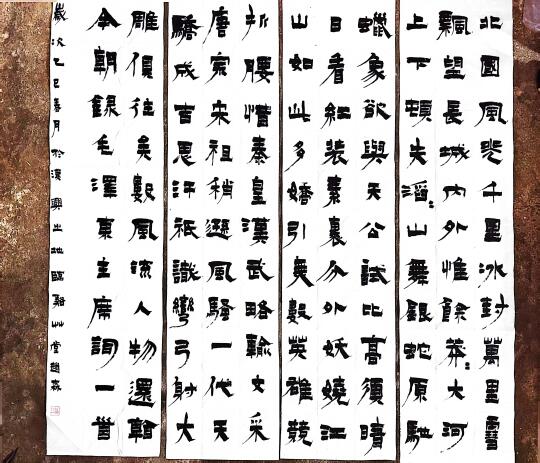 北國風光千里冰封萬里雪
飄望長城內外惟餘莽〻大河
上下頓失滔〻山舞銀蛇原馳
蠟象欲與天公試比高須晴
日看紅裝素裹分外妖嬈江
山如此多嬌引無數英雄競
折腰惜秦皇漢武略輸文采
唐宗宋祖稍遜風騷一代天
驕成吉思汗祇識彎弓射大
雕俱往矣數風流人物還看
今朝錄毛澤東主席詞一首
歲次乙巳春月於漢興之地臨艸堂趙森